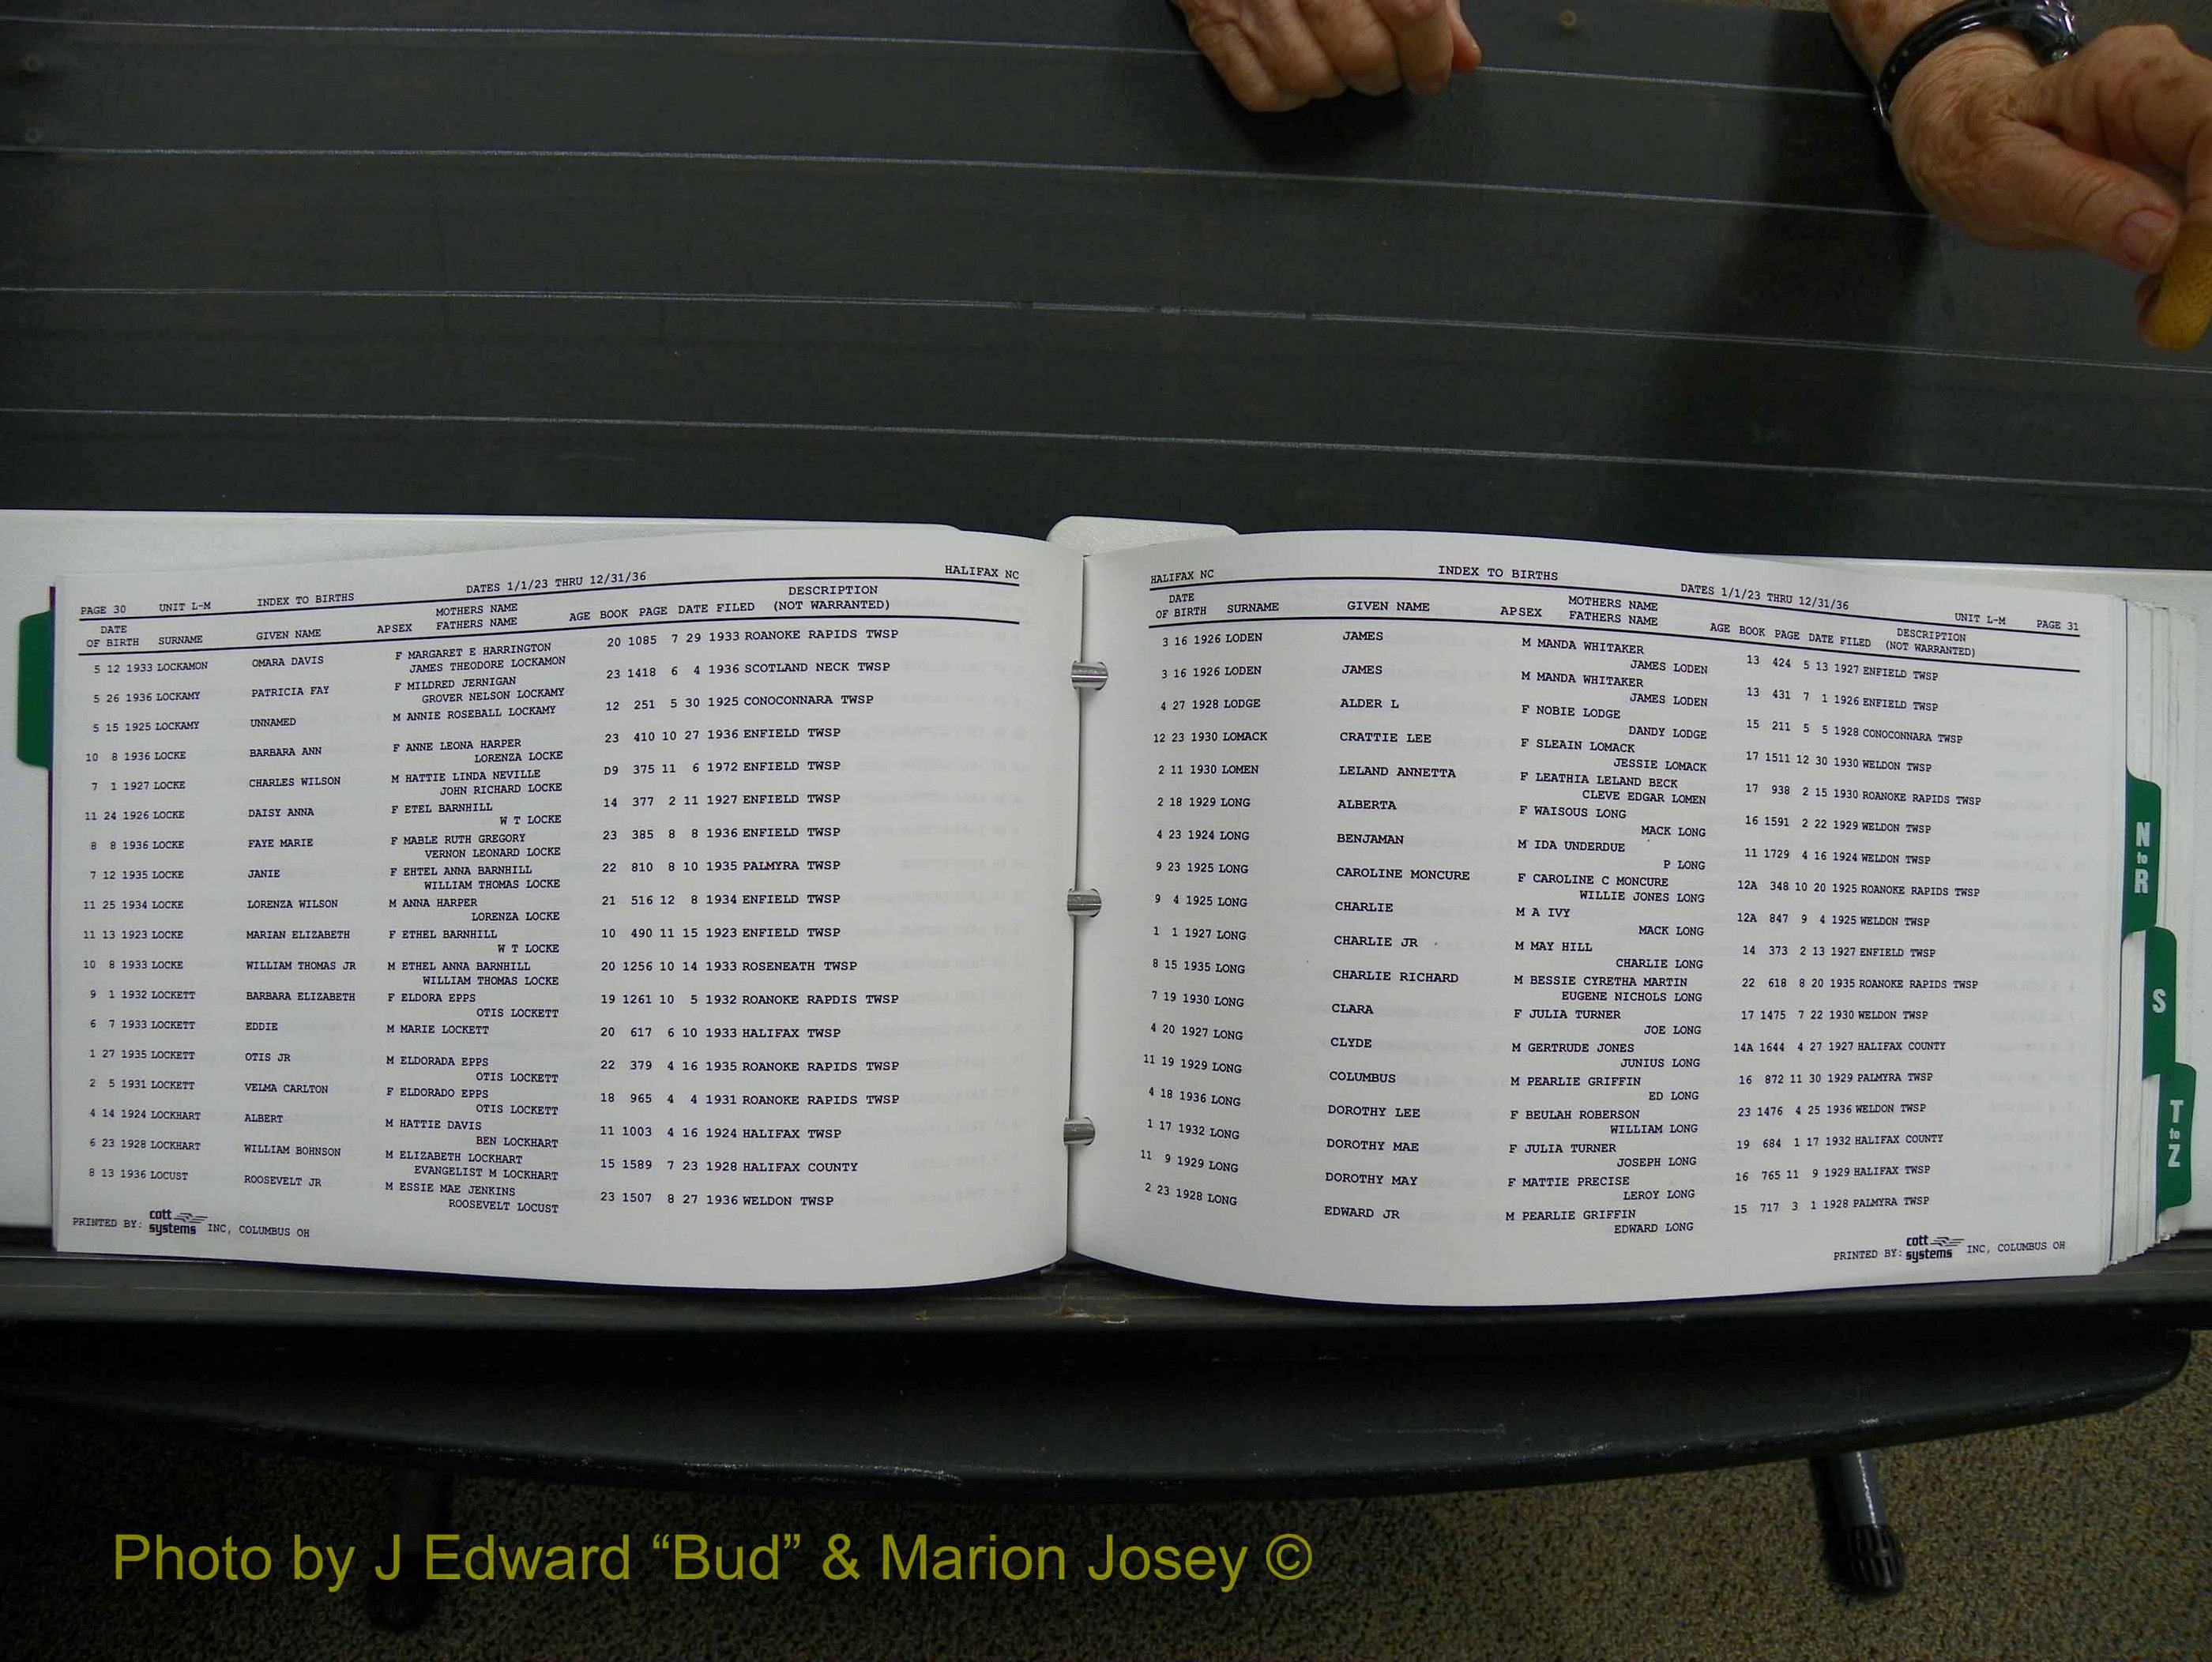 PAGE 30 UNIT L-M INDEX TO BIRTHS DATES 1/1/23 THRU 12/31/36 HALIFAX NC
DATE MOTHERS NAME DESCRIPTION
OF BIRTH SURNAME GIVEN NAME APSEX FATHERS NAME AGE BOOK PAGE DATE FILED (NOT WARRANTED)
5 12 1933 LOCKAMON OMARA DAVIS F MARGARET E HARRINGTON 20 1085 7 29 1933 ROANOKE RAPIDS TWSP
JAMES THEODORE LOCKAMON
5 26 1936 LOCKAMY PATRICIA FAY F MILDRED JERNIGAN 23 1418 6 4 1936 SCOTLAND NECK TWSP
GROVER NELSON LOCKAMY
5 15 1925 LOCKAMY UNNAMED M ANNIE ROSEBALL LOCKAMY 12 251 5 30 1925 CONOCONNARA TWSP
10 8 1936 LOCKE BARBARA ANN F ANNE LEONA HARPER 23 410 10 27 1936 ENFIELD TWSP
LORENZA LOCKE
7 1 1927 LOCKE CHARLES WILSON M HATTIE LINDA NEVILLE D9 375 11 6 1972 ENFIELD TWSP
JOHN RICHARD LOCKE
11 24 1926 LOCKE DAISY ANNA F ETEL BARNHILL 14 377 2 11 1927 ENFIELD TWSP
W T LOCKE
8 8 1936 LOCKE FAYE MARIE F MABLE RUTH GREGORY 23 385 8 8 1936 ENFIELD TWSP
VERNON LEONARD LOCKE
7 12 1935 LOCKE JANIE F EHTEL ANNA BARNHILL 22 810 8 10 1935 PALMYRA TWSP
WILLIAM THOMAS LOCKE
11 25 1934 LOCKE LORENZA WILSON M ANNA HARPER 21 516 12 8 1934 ENFIELD TWSP
LORENZA LOCKE
11 13 1923 LOCKE MARIAN ELIZABETH F ETHEL BARNHILL 10 490 11 15 1923 ENFIELD TWSP
W T LOCKE
10 8 1933 LOCKE WILLIAM THOMAS JR M ETHEL ANNA BARNHILL 20 1256 10 14 1933 ROSENEATH TWSP
WILLIAM THOMAS LOCKE
9 1 1932 LOCKETT BARBARA ELIZABETH F ELDORA EPPS 19 1261 10 5 1932 ROANOKE RAPDIS TWSP
OTIS LOCKETT
6 7 1933 LOCKETT EDDIE M MARIE LOCKETT 20 617 6 10 1933 HALIFAX TWSP
1 27 1935 LOCKETT OTIS JR M ELDORADA EPPS 22 379 4 16 1935 ROANOKE RAPIDS TWSP
OTIS LOCKETT
2 5 1931 LOCKETT VELMA CARLTON F ELDORADO EPPS 18 965 4 4 1931 ROANOKE RAPIDS TWSP
OTIS LOCKETT
4 14 1924 LOCKHART ALBERT M HATTIE DAVIS 11 1003 4 16 1924 HALIFAX TWSP
BEN LOCKHART
6 23 1928 LOCKHART WILLIAM BOHNSON M ELIZABETH LOCKHART 15 1589 7 23 1928 HALIFAX COUNTY
EVANGELIST M LOCKHART
8 13 1936 LOCUST ROOSEVELT JR M ESSIE MAE JENKINS 23 1507 8 27 1936 WELDON TWSP
ROOSEVELT LOCUST
PRINTED BY: cott systems INC, COLUMBUS OH
HALIFAX NC INDEX TO BIRTHS DATES 1/1/23 THRU 12/31/36 UNIT L-M PAGE 31
DATE MOTHERS NAME DESCRIPTION
OF BIRTH SURNAME GIVEN NAME APSEX FATHERS NAME AGE BOOK PAGE DATE FILED (NOT WARRANTED)
3 16 1926 LODEN JAMES M MANDA WHITAKER 13 424 5 13 1927 ENFIELD TWSP
JAMES LODEN
3 16 1926 LODEN JAMES M MANDA WHITAKER 13 431 7 1 1926 ENFIELD TWSP
JAMES LODEN
4 27 1928 LODGE ALDER L F NOBIE LODGE 15 211 5 5 1928 CONOCONNARA TWSP
DANDY LODGE
12 23 1930 LOMACK CRATTIE LEE F SLEAIN LOMACK 17 1511 12 30 1930 WELDON TWSP
JESSIE LOMACK
2 11 1930 LOMEN LELAND ANNETTA F LEATHIA LELAND BECK 17 938 2 15 1930 ROANOKE RAPIDS TWSP
CLEVE EDGAR LOMEN
2 18 1929 LONG ALBERTA F WAISOUS LONG 16 1591 2 22 1929 WELDON TWSP
MACK LONG
4 23 1924 LONG BENJAMAN M IDA UNDERDUE 11 1729 4 16 1924 WELDON TWSP
P LONG
9 23 1925 LONG CAROLINE MONCURE F CAROLINE C MONCURE 12A 348 10 20 1925 ROANOKE RAPIDS TWSP
WILLIE JONES LONG
9 4 1925 LONG CHARLIE M A IVY 12A 847 9 4 1925 WELDON TWSP
MACK LONG
1 1 1927 LONG CHARLIE JR M MAY HILL 14 373 2 13 1927 ENFIELD TWSP
CHARLIE LONG
8 15 1935 LONG CHARLIE RICHARD M BESSIE CYRETHA MARTIN 22 618 8 20 1935 ROANOKE RAPIDS TWSP
EUGENE NICHOLS LONG
7 19 1930 LONG CLARA F JULIA TURNER 17 1475 7 22 1930 WELDON TWSP
JOE LONG
4 20 1927 LONG CLYDE M GERTRUDE JONES 14A 1644 4 27 1927 HALIFAX COUNTY
JUNIUS LONG
11 19 1929 LONG COLUMBUS M PEARLIE GRIFFIN 16 872 11 30 1929 PALMYRA TWSP
ED LONG
4 18 1936 LONG DOROTHY LEE F BEULAH ROBERSON 23 1476 4 25 1936 WELDON TWSP
WILLIAM LONG
1 17 1932 LONG DOROTHY MAE F JULIA TURNER 19 684 1 17 1932 HALIFAX COUNTY
JOSEPH LONG
11 9 1929 LONG DOROTHY MAY F MATTIE PRECISE 16 765 11 9 1929 HALIFAX TWSP
LEROY LONG
2 23 1928 LONG EDWARD JR M PEARLIE GRIFFIN 15 717 3 1 1928 PALMYRA TWSP
EDWARD LONG
PRINTED BY: cott systems INC, COLUMBUS OH
N to R
S
T to Z
Photo by J Edward “Bud” & Marion Josey ©